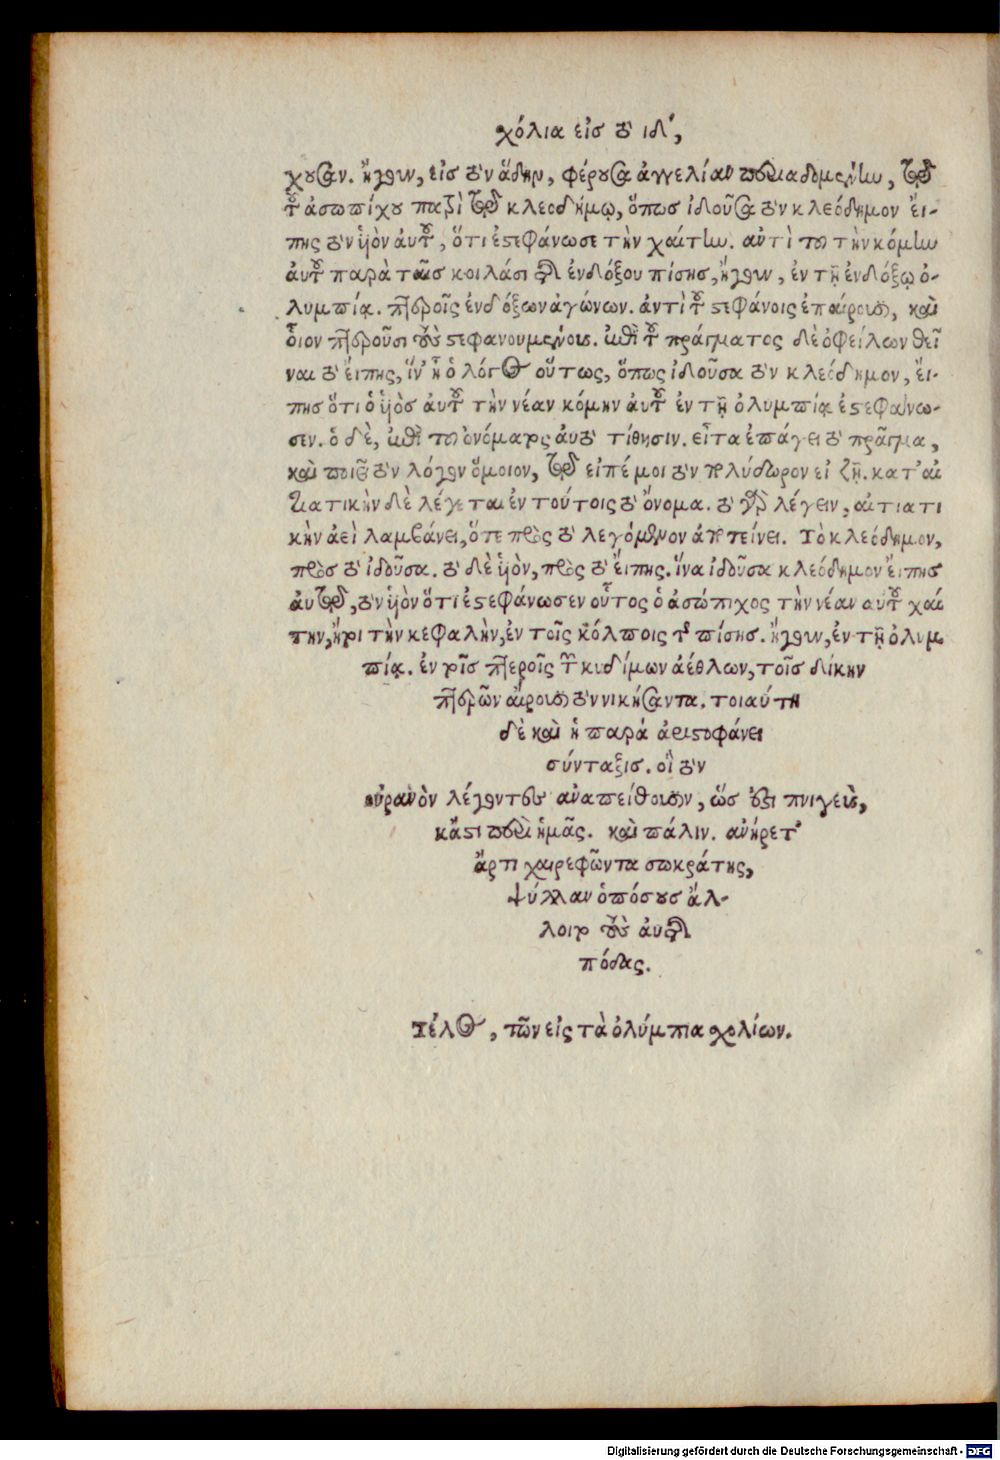 χόλια εἰς τὸ ιδ´,
χουσαν. ἤγουν, εἰς τὸν ἅδην, φέρουσα ἀγγελίαν περιαδομένην, τῷ
τοῦ ἀσωπίχου πατρὶ τῷ κλεοδήμῳ, ὅπως ἰδοῦσα τὸν κλεόδημον εἴ-
πης τὸν ὑὸν αὐτοῦ, ὅτι ἐστεφάνωσε τὴν χαίτην. ἀντὶ τοῦ τὴν κόμην
αὐτοῦ παρὰ ταῖς κοιλάσι τῆς ἐνδόξου πίσης, ἤγουν, ἐν τῇ ἐνδόξῳ ὀ-
λυμπίᾳ. πτεροῖς ἐνδόξων ἀγώνων. ἀντὶ τοῦ στεφάνοις ἐπαίρουσι, καὶ
οἷον πτεροῦσι τοὺς στεφανουμένους. κατὰ τοῦ πράγματος δὲ ὀφείλων θεῖ
ναι τὸ εἴπης, ἵν' ᾖ ὁ λόγος οὕτως, ὅπως ἰδοῦσα τὸν κλεόδημον, εἴ-
πης ὅτι ὁ ὑὸς αὐτοῦ τὴν νέαν κόμην αὐτοῦ ἐν τῇ ὀλυμπίᾳ ἐστεφάνω-
σεν. ὁ δὲ, κατὰ τοῦ ὀνόματος αὐτὸ τίθησιν. εἶτα ἐπάγει τὸ πρᾶγμα,
καὶ ποιεῖ τὸν λόγον ὅμοιον, τῷ εἰπέ μοι τὸν πολύδωρον εἰ ζῇ. κατ' αἰ
τιατικὴν δὲ λέγεται ἐν τούτοις τὸ ὄνομα. τὸ γὰρ λέγειν, αἰτιατι
κὴν ἀεὶ λαμβάνει, ὅτε πρὸς τὸ λεγόμενον ἀποτείνει. Τὸ κλεόδημον,
πρὸς τὸ ἰδοῦσα. τὸ δὲ ὑὸν, πρὸς τὸ εἴπης. ἵνα ἰδοῦσα κλεόδημον εἴπης
αὐτῷ, τὸν ὑὸν ὅτι ἐστεφάνωσεν οὗτος ὁ ἀσώπιχος τὴν νέαν αὐτοῦ χαί
την, ἤτοι τὴν κεφαλὴν, ἐν τοῖς κόλποις τῆς πίσης. ἤγουν, ἐν τῇ ὀλυμ
πίᾳ. ἐν τοῖς πτεροῖς τῶν κυδίμων ἀέθλων, τοῖς δίκην
πτερῶν αἴρουσι τὸν νικήσαντα. τοιαύτη
δὲ καὶ ἡ παρὰ ἀριστοφάνει
σύνταξις. οἳ τὸν
οὐρανὸν λέγοντες ἀναπείθουσιν, ὥς ἐστι πνιγεὺς,
κἄστι περὶ ἡμᾶς. καὶ πάλιν. ἀνήρετ'
ἄρτι χαιρεφῶντα σωκράτης,
ψύλλαν ὁπόσους ἅλ-
λοιτο τοὺς αὐτῆς
πόδας.
Τέλος, τῶν εἰς τὰ ὀλύμπια χολίων.
Digitalisierung gefördert durch die Deutsche Forschungsgemeinschaft - DFG